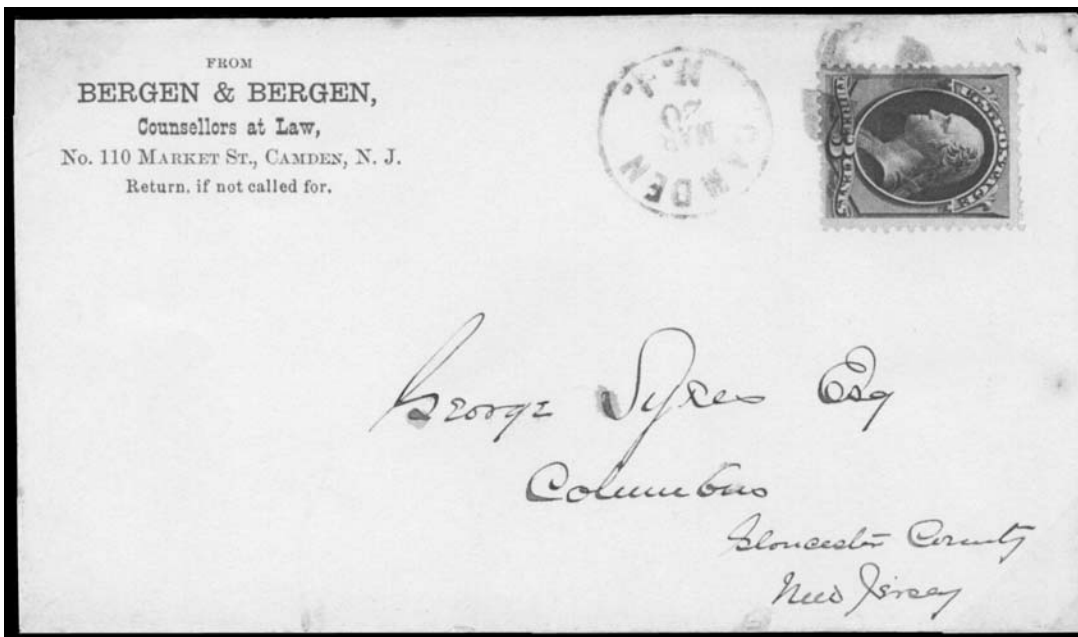 FROM
BERGEN & BERGEN,
Counsellors at Law,
No. 110 MARKET ST., CAMDEN, N. J.
Return, if not called for.
CAMDEN
MAR
20
N.J.
U.S. POSTAGE
THREE 3 CENTS
George Sykes Esq
Columbus
Gloucester County
New Jersey